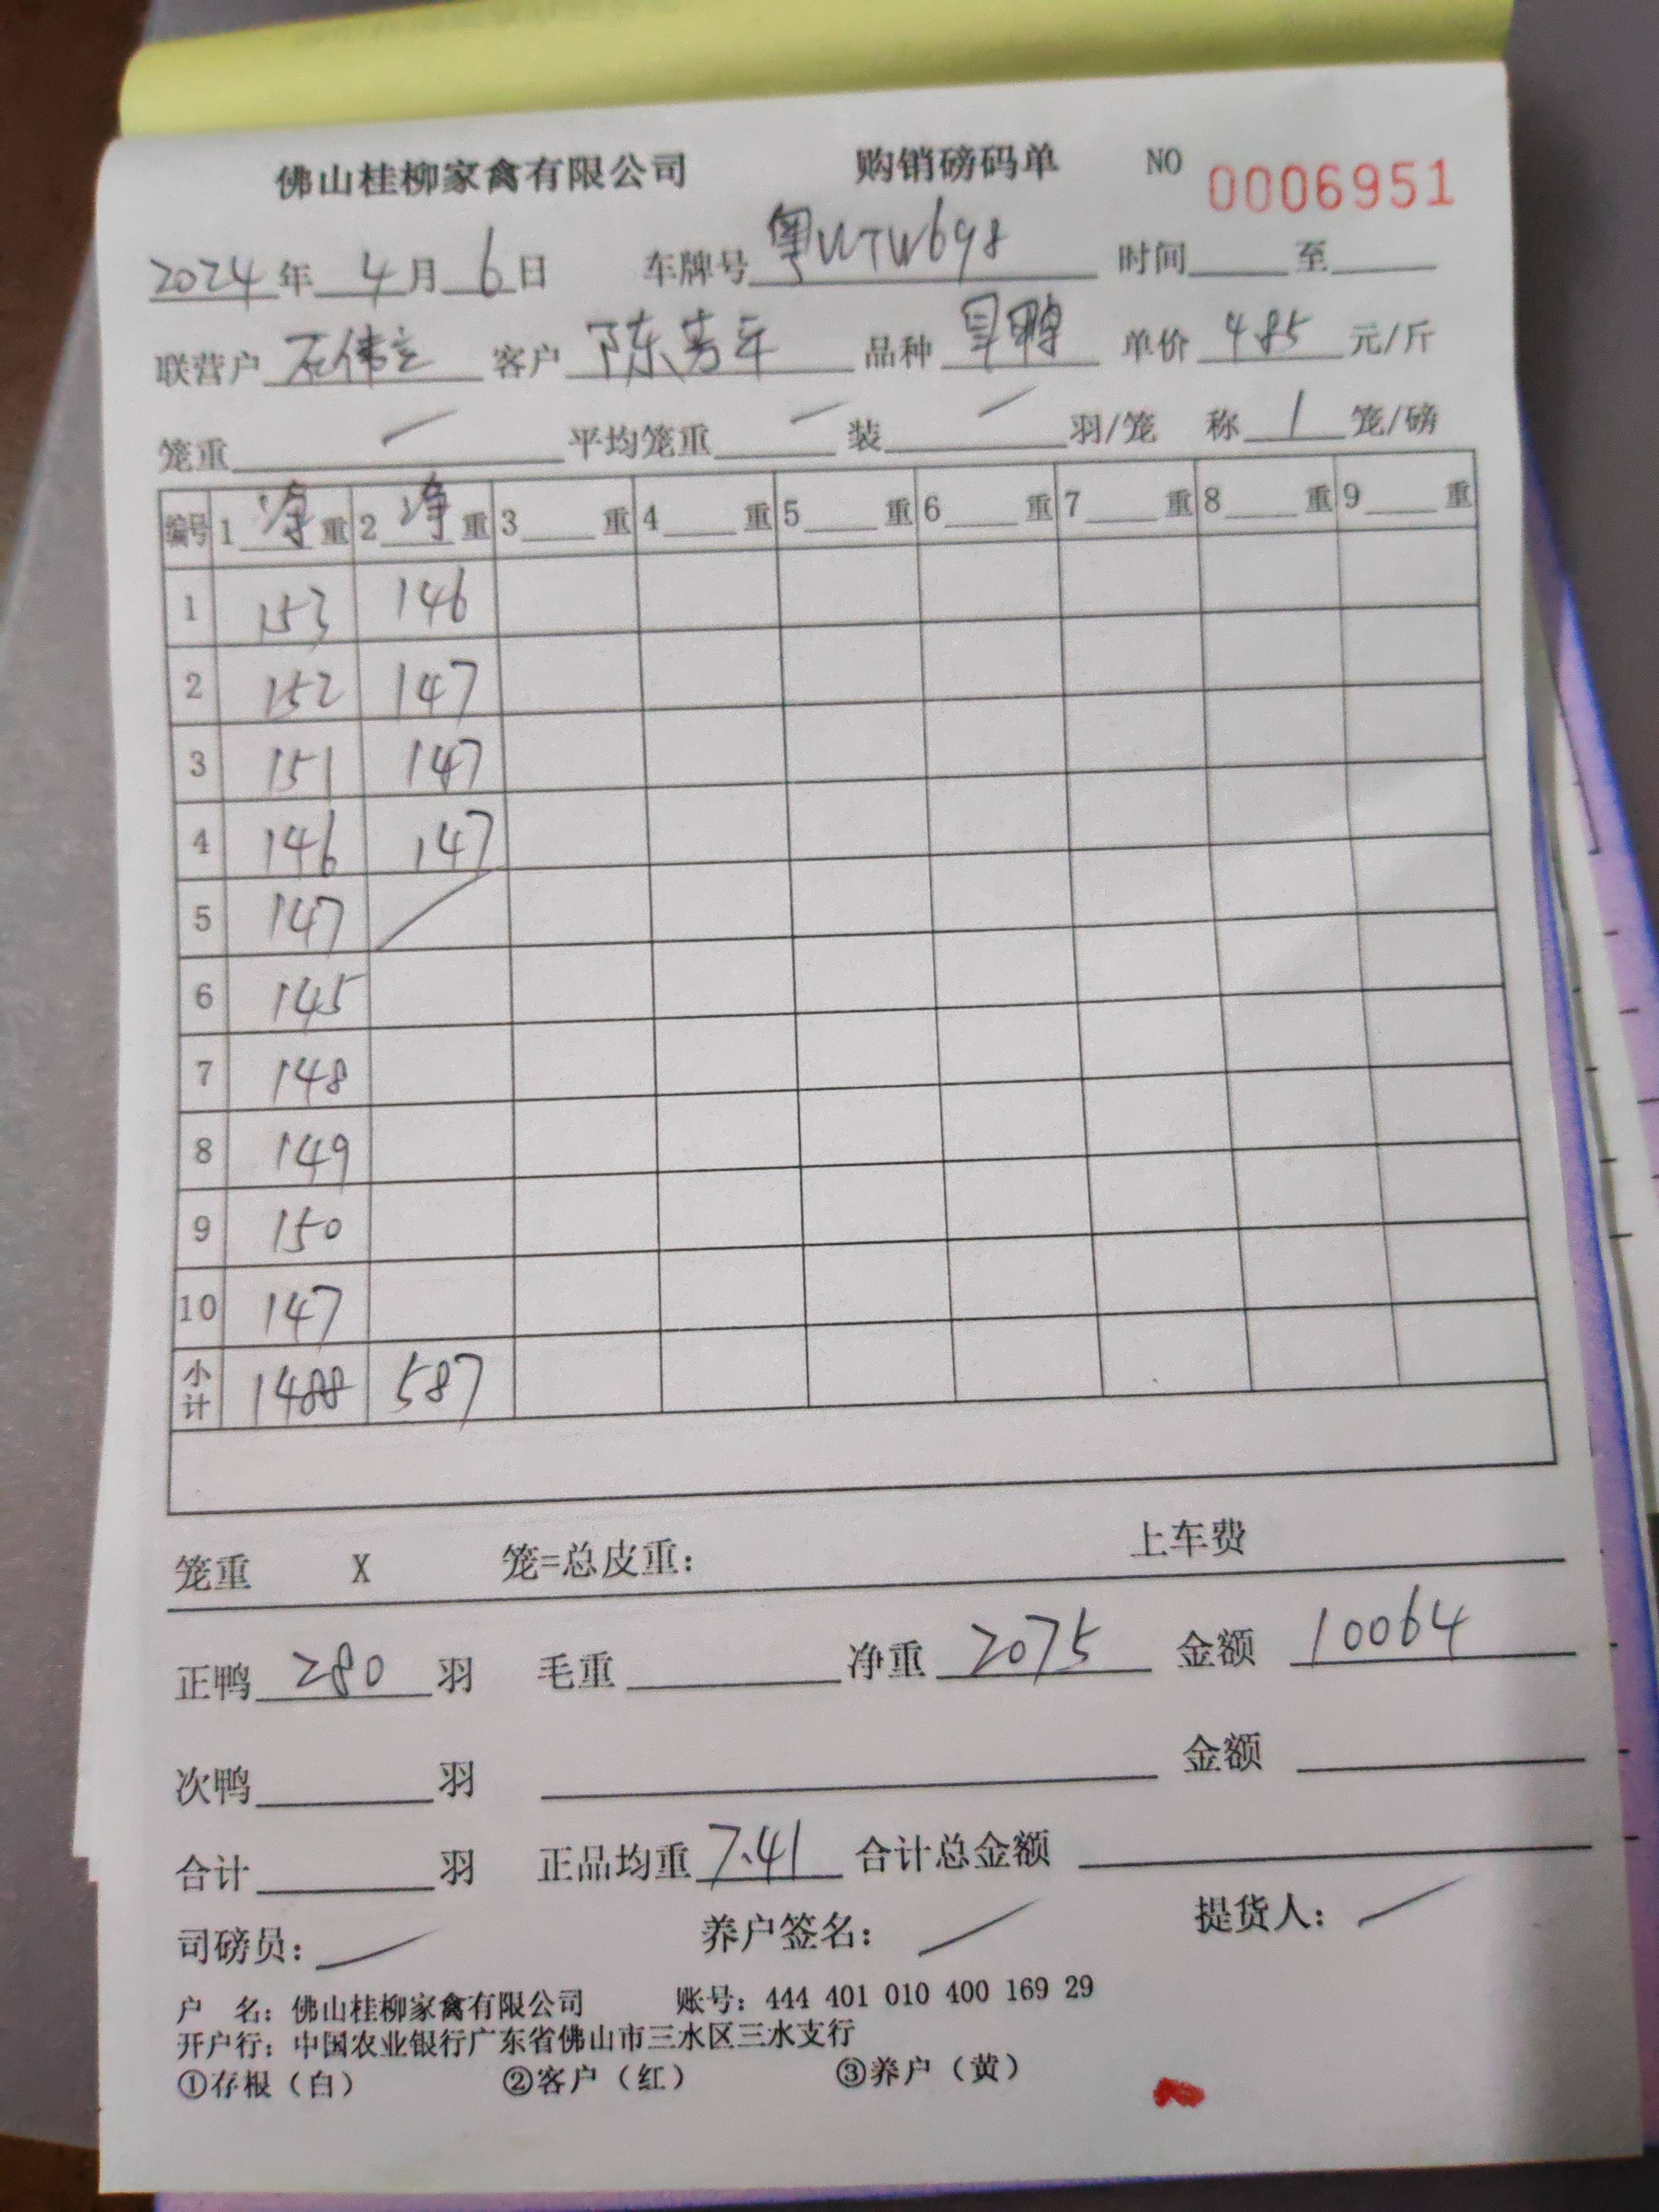 佛山桂柳家禽有限公司 购销磅码单 NO 0006951
2024年 4月 6日 车牌号 粤WTW698 时间 至
联营户 石伟立 客户 陈 品种 旱鸭 单价 485 元/斤
笼重 / 平均笼重 / 装 / 羽/笼 称 1 笼/磅
编号 1 净 重 2 净 重 3 重 4 重 5 重 6 重 7 重 8 重 9 重
1 153 146
2 152 147
3 151 147
4 146 147
5 147 /
6 145
7 148
8 149
9 150
10 147
小计 1488 587
笼重 X 笼=总皮重: 上车费
正鸭 280 羽 毛重 净重 2075 金额 10064
次鸭 羽 金额
合计 羽 正品均重 7.41 合计总金额
司磅员: / 养户签名: / 提货人: /
户 名: 佛山桂柳家禽有限公司 账号: 444 401 010 400 169 29
开户行: 中国农业银行广东省佛山市三水区三水支行
①存根(白) ②客户(红) ③养户(黄)